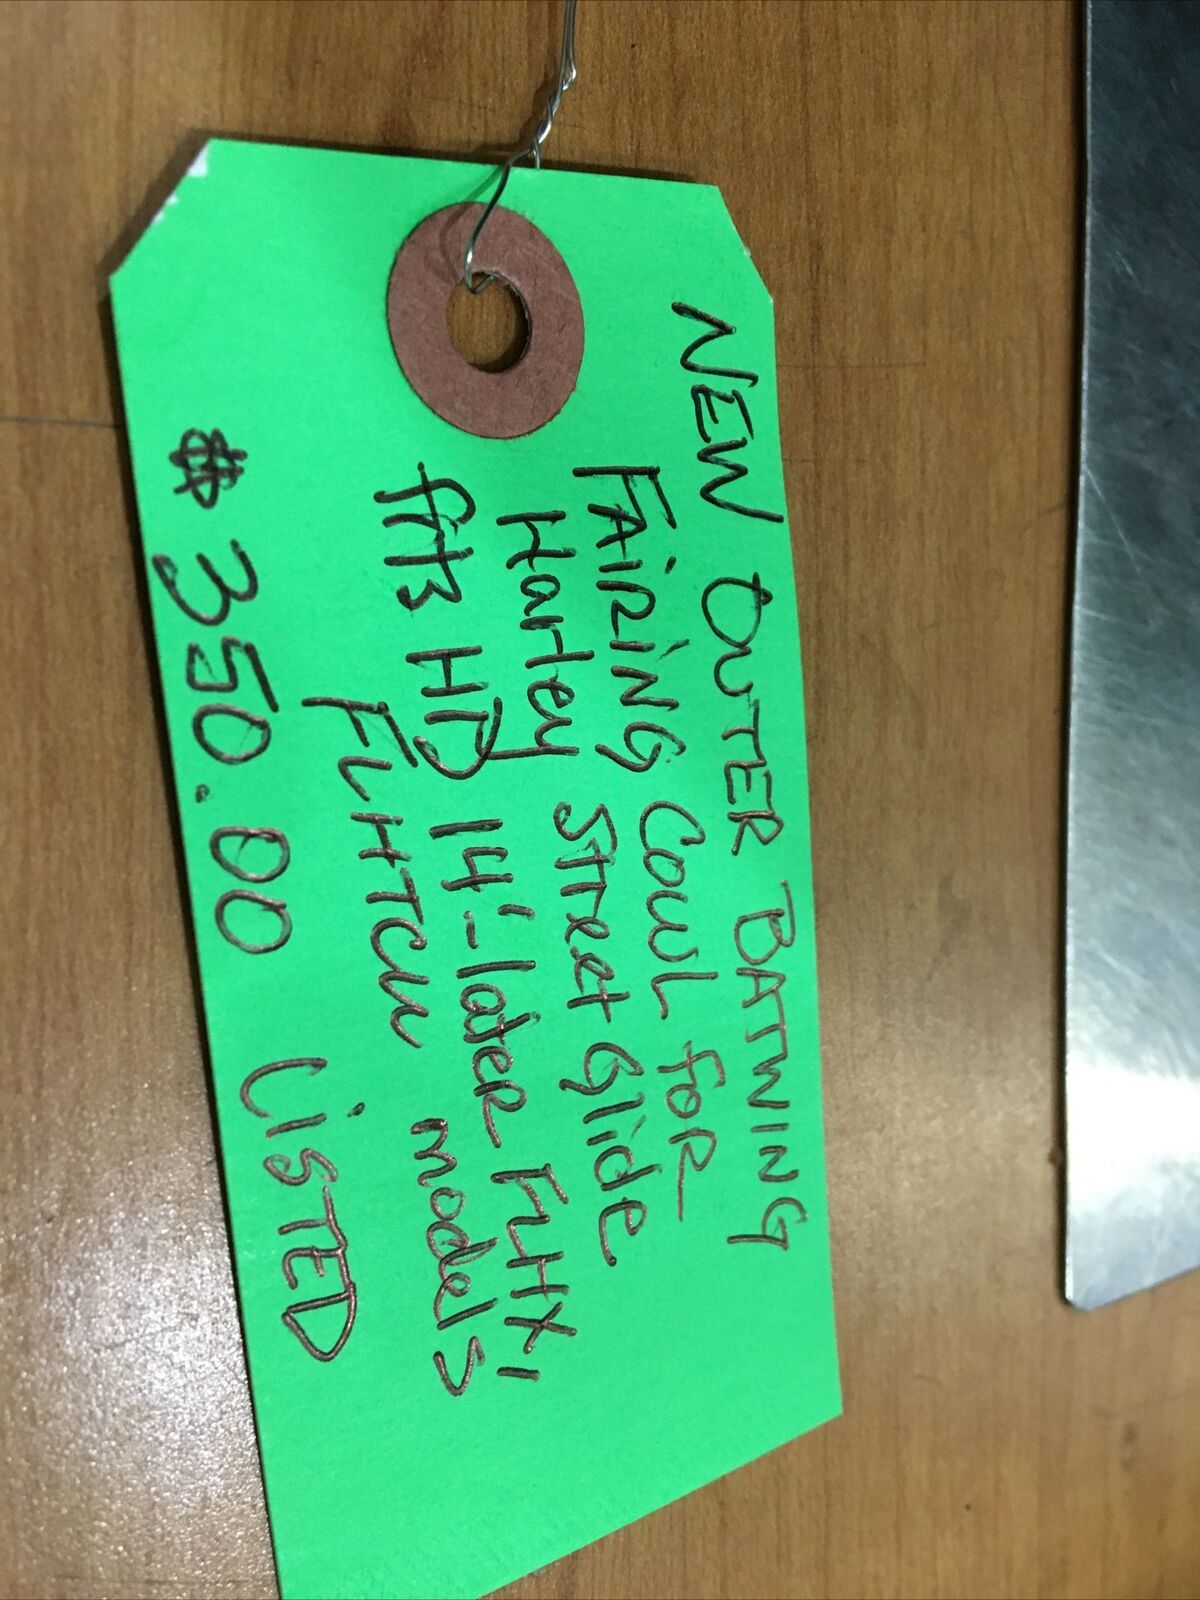 NEW OUTER BATWING
FAiRiNG COWL foR
Harley Street Glide
fits HD 14'-later FLHX,
FLHTCU models
$350.00 LiSTED